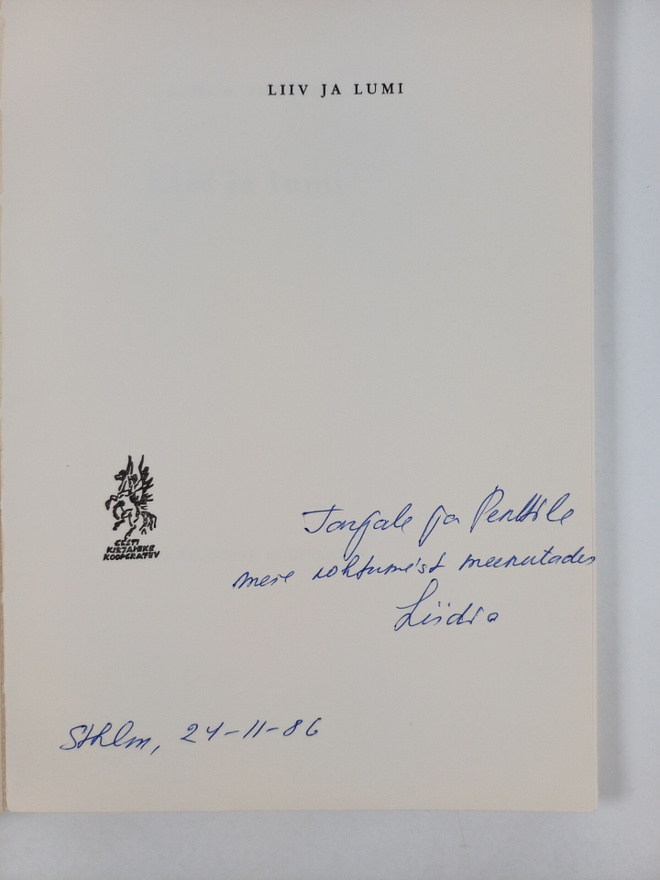 LIIV JA LUMI
EESTI
KIRJANIKE
KOOPERATIIV
Tarjale ja Penttile
meie kohtumist meenutades
Liidia
Sthlm, 24-11-86